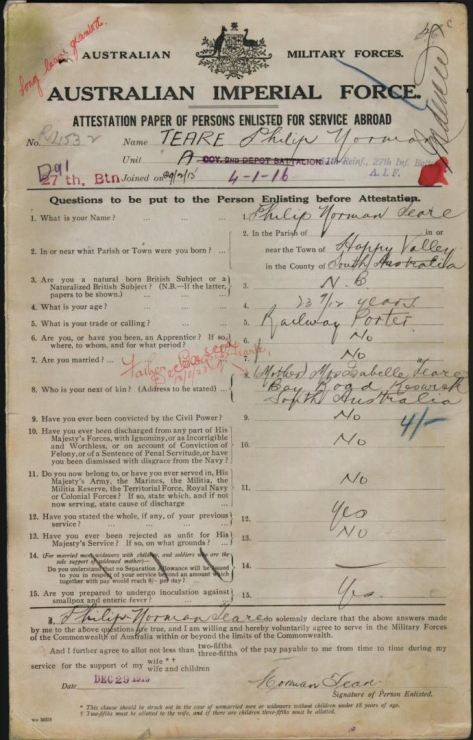 Long leave granted.
AUSTRALIAN MILITARY FORCES.
AUSTRALIAN IMPERIAL FORCE.
ATTESTATION PAPER OF PERSONS ENLISTED FOR SERVICE ABROAD
No. Name TEARE Philip Norman
Unit A COY. 2ND DEPOT BATTALION Reinf., 27th Inf. Batt. A.I.F.
27th. Btn Joined on 4-1-16
Questions to be put to the Person Enlisting before Attestation.
1. What is your Name? ... ... ... 1. Philip Norman Teare
2. In or near what Parish or Town were you born? ... 2. In the Parish of in or
near the Town of Happy Valley
in the County of South Australia
3. Are you a natural born British Subject or a
Naturalized British Subject? (N.B.—If the latter,
papers to be shown.) ... ... 3. N. B.
4. What is your age? ... ... ... 4. 23 7/12 years
5. What is your trade or calling? ... ... 5. Railway Porter
6. Are you, or have you been, an Apprentice? If so,
where, to whom, and for what period? ... 6. No
7. Are you married? ... 7. No
Father
8. Who is your next of kin? (Address to be stated) ... 8. Mother Mrs Isabella Teare
Bay Road Keswick
South Australia
9. Have you ever been convicted by the Civil Power? 9. No
4/-
10. Have you ever been discharged from any part of His
Majesty's Forces, with Ignominy, or as Incorrigible
and Worthless, or on account of Conviction of
Felony, or of a Sentence of Penal Servitude, or have
you been dismissed with disgrace from the Navy? 10. No
11. Do you now belong to, or have you ever served in, His
Majesty's Army, the Marines, the Militia, the
Militia Reserve, the Territorial Force, Royal Navy
or Colonial Forces? If so, state which, and if not
now serving, state cause of discharge 11. No
12. Have you stated the whole, if any, of your previous
service? ... ... ... 12. Yes
13. Have you ever been rejected as unfit for His
Majesty's Service? If so, on what grounds? ... 13. No
14. (For married men, widowers with children, and soldiers who are the
sole support of widowed mother)—
Do you understand that no Separation Allowance will be
to you in respect of your service beyond an amount which
together with pay would reach 8/- per day? ... 14. —
15. Are you prepared to undergo inoculation against
smallpox and enteric fever? ... 15. Yes.
I, Philip Norman Teare do solemnly declare that the above answers made
by me to the above questions are true, and I am willing and hereby voluntarily agree to serve in the Military Forces
of the Commonwealth of Australia within or beyond the limits of the Commonwealth.
And I further agree to allot not less than two-fifths three-fifths of the pay payable to me from time to time during my
service for the support of my wife *† wife and children
Date DEC 29 1915
Signature of Person Enlisted.
* This clause should be struck out in the case of unmarried men or widowers without children under 18 years of age.
† Two-fifths must be allotted to the wife, and if there are children three-fifths must be allotted.